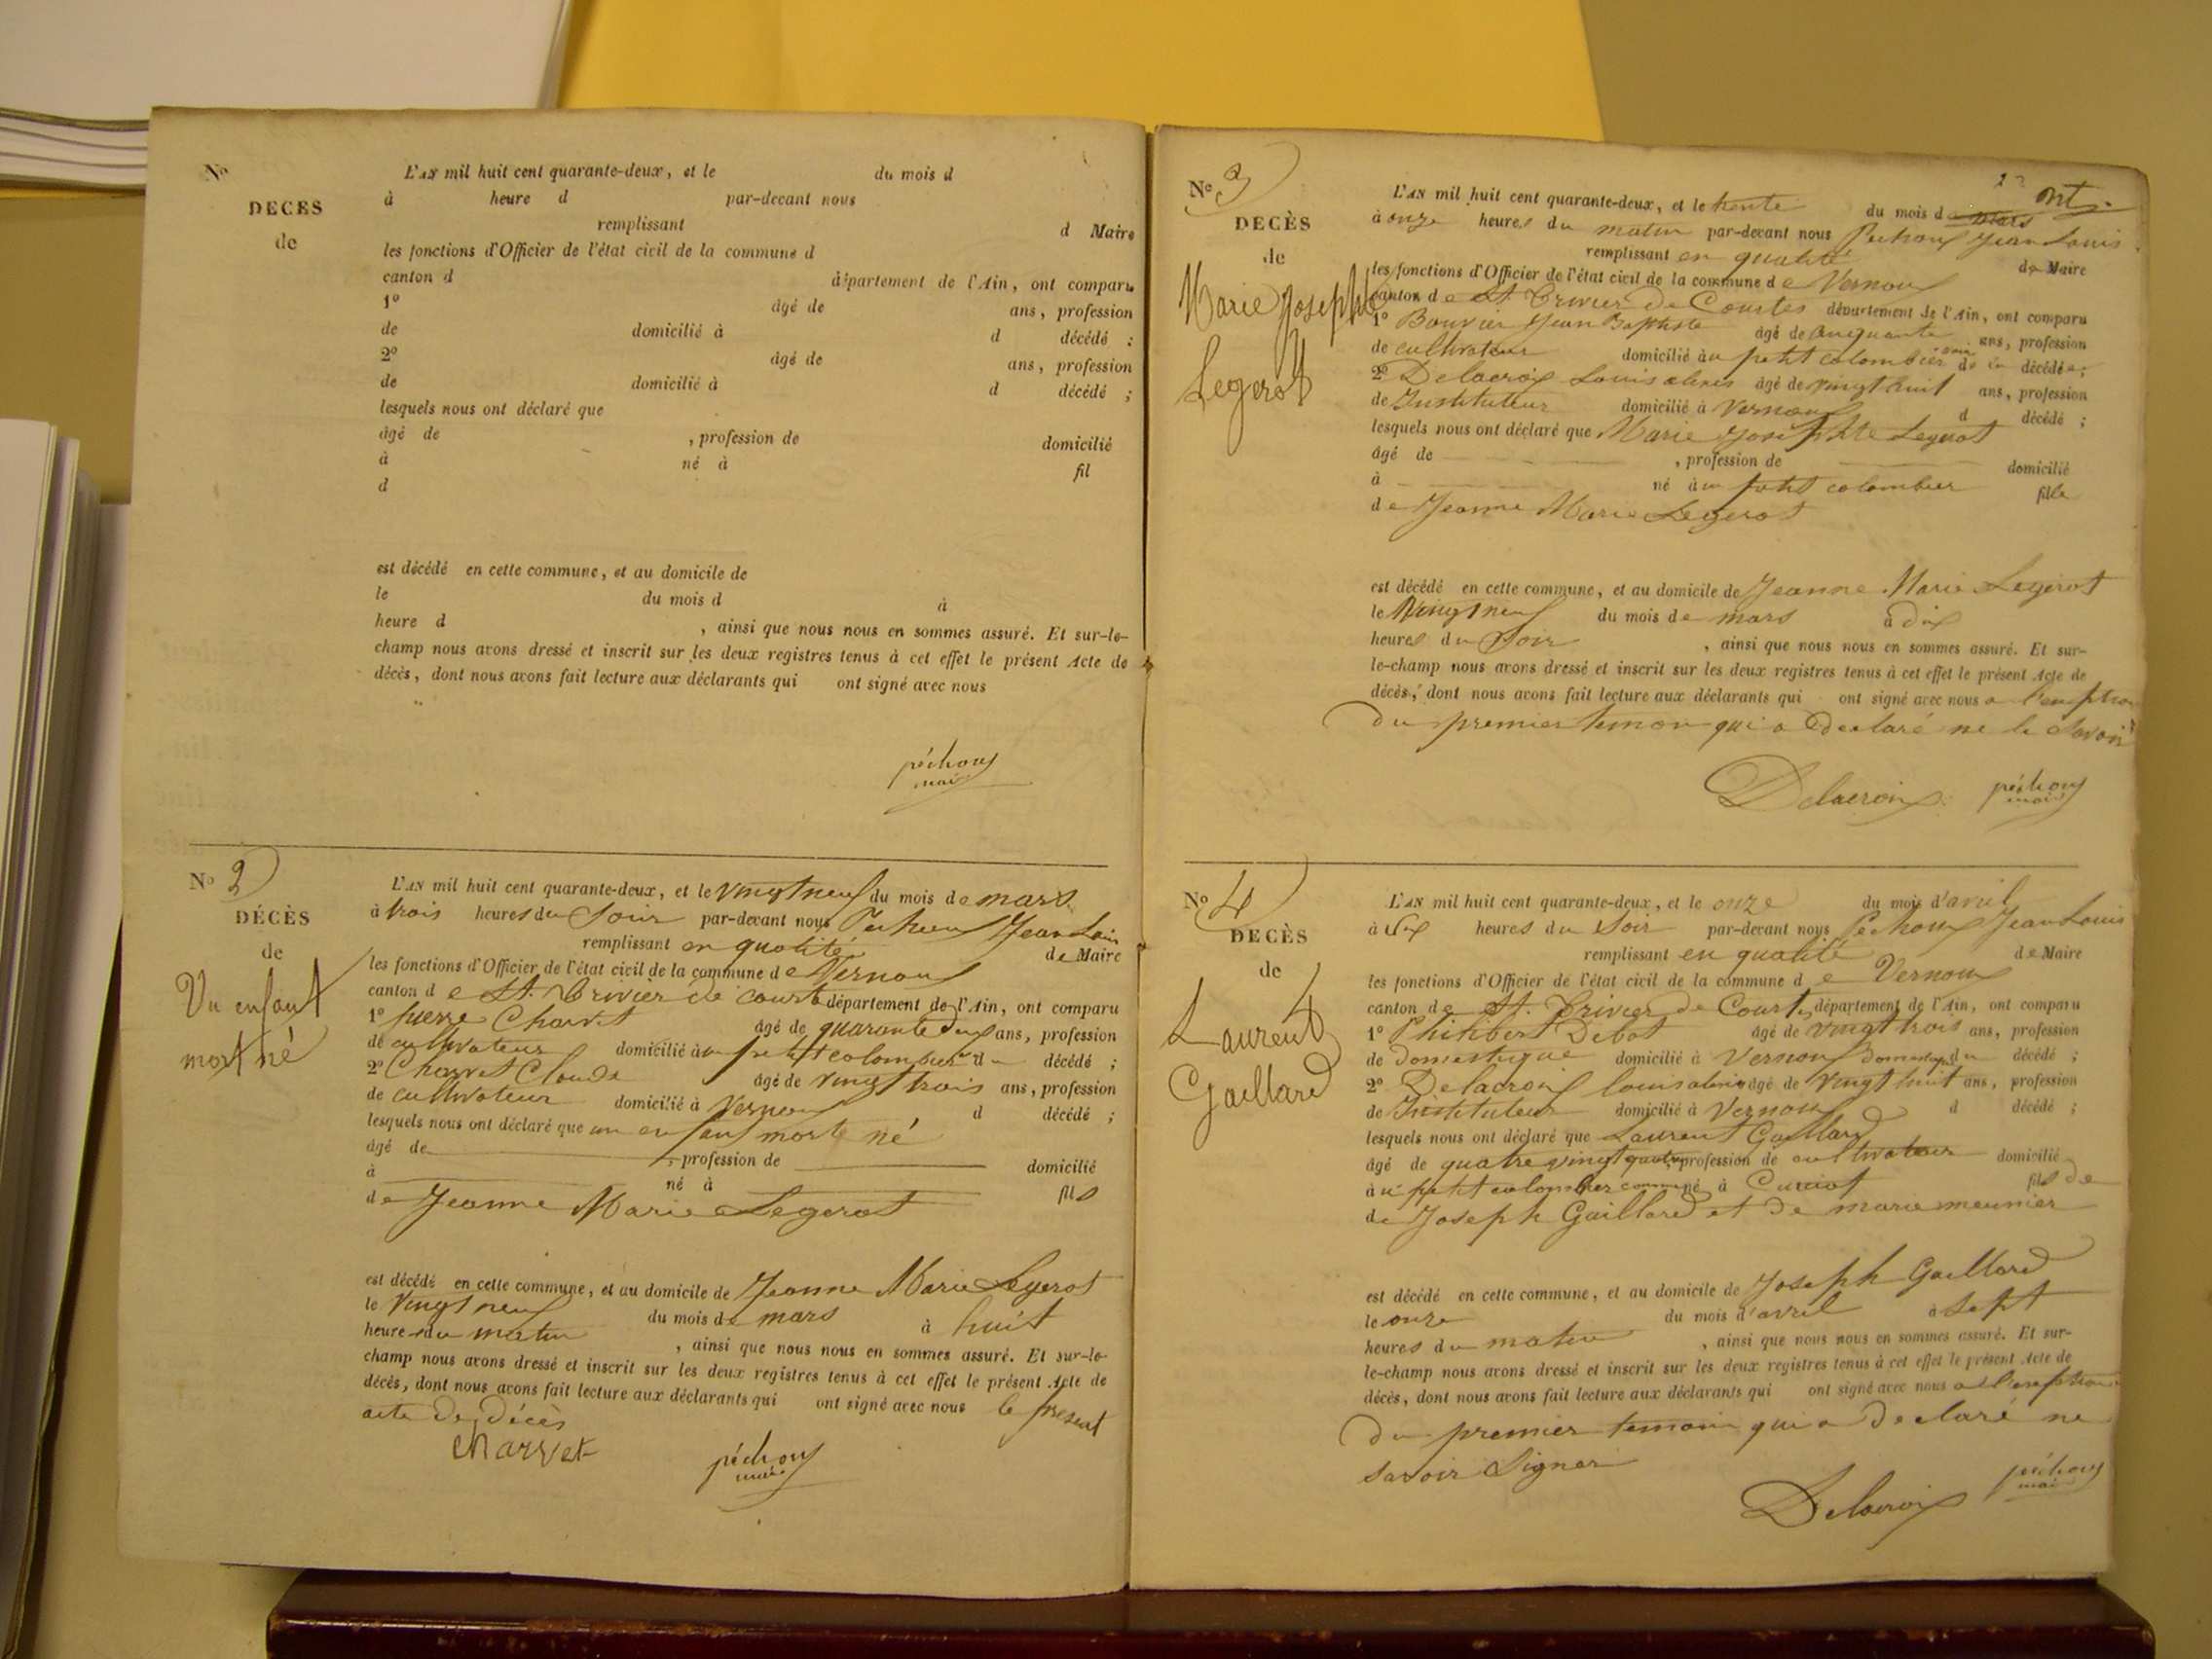 No
DECES
de
L'AN mil huit cent quarante-deux, et le du mois d
à heure d par-devant nous
remplissant d Maire
les fonctions d'Officier de l'état civil de la commune d
canton d département de l'Ain, ont comparu
1o âgé de ans, profession
de domicilié à d décédé ;
2o âgé de ans, profession
de domicilié à d décédé ;
lesquels nous ont déclaré que
âgé de , profession de domicilié
à né à fil
d
est décédé en cette commune, et au domicile de
le du mois d à
heure d , ainsi que nous nous en sommes assuré. Et sur-le-
champ nous avons dressé et inscrit sur les deux registres tenus à cet effet le présent Acte de
décès, dont nous avons fait lecture aux déclarants qui ont signé avec nous
péchoux
maire
No 2
DÉCÈS
de
Un enfant
mort né
L'AN mil huit cent quarante-deux, et le vingt neuf du mois de mars
à trois heures du soir par-devant nous Pechoux Jean Louis
remplissant en qualité de Maire
les fonctions d'Officier de l'état civil de la commune de Vernoux
canton de St. Trivier de Courtes département de l'Ain, ont comparu
1o pierre Charvet âgé de quarante deux ans, profession
de cultivateur domicilié au petit colombier du décédé ;
2o Charvet Claude âgé de vingt trois ans, profession
de cultivateur domicilié à Vernoux d décédé ;
lesquels nous ont déclaré que un enfant mort né
âgé de , profession de domicilié
à né à fils
de Jeanne Marie Legerot
est décédé en cette commune, et au domicile de Jeanne Marie Legerot
le vingt neuf du mois de mars à huit
heures du matin , ainsi que nous nous en sommes assuré. Et sur-le-
champ nous avons dressé et inscrit sur les deux registres tenus à cet effet le présent Acte de
décès, dont nous avons fait lecture aux déclarants qui ont signé avec nous le présent
acte de décès
charvet péchoux
maire
No 3
DECÈS
de
Marie Josephte
Legerot
L'AN mil huit cent quarante-deux, et le trente du mois de mars
à onze heures du matin par-devant nous Pechoux Jean Louis
remplissant en qualité de Maire
les fonctions d'Officier de l'état civil de la commune de Vernoux
canton de St. Trivier de Courtes département de l'Ain, ont comparu
1o Bouvier Jean Baptiste âgé de cinquante ans, profession
de cultivateur domicilié au petit colombier de la décédée ;
2o Delacroix Louis alexis âgé de vingt huit ans, profession
de Instituteur domicilié à Vernoux d décédé ;
lesquels nous ont déclaré que Marie Josephte Legerot
âgé de , profession de domicilié
à né au petit colombier fille
de Jeanne Marie Legerot
est décédé en cette commune, et au domicile de Jeanne Marie Legerot
le vingt neuf du mois de mars à dix
heures du soir , ainsi que nous nous en sommes assuré. Et sur-
le-champ nous avons dressé et inscrit sur les deux registres tenus à cet effet le présent Acte de
décès, dont nous avons fait lecture aux déclarants qui ont signé avec nous a l'exeption
du premier temoin qui a declaré ne le savoir
Delacroix péchoux
maire
No 4
DECÈS
de
Laurent
Gaillard
L'AN mil huit cent quarante-deux, et le onze du mois d'avril
à six heures du soir par-devant nous Pechoux Jean Louis
remplissant en qualité de Maire
les fonctions d'Officier de l'état civil de la commune de Vernoux
canton de St. Trivier de Courtes département de l'Ain, ont comparu
1o Philibert Debot âgé de vingt trois ans, profession
de domestique domicilié à Vernoux domestique du décédé ;
2o Delacroix louis alexis âgé de vingt huit ans, profession
de Instituteur domicilié à Vernoux d décédé ;
lesquels nous ont déclaré que Laurent Gaillard
âgé de quatre vingt quatre, profession de cultivateur domicilié
au petit colombier commune né à Curciat fils de
de Joseph Gaillard et de marie meunier
est décédé en cette commune, et au domicile de Joseph Gaillard
le onze du mois d'avril à sept
heures du matin , ainsi que nous nous en sommes assuré. Et sur-
le-champ nous avons dressé et inscrit sur les deux registres tenus à cet effet le présent Acte de
décès, dont nous avons fait lecture aux déclarants qui ont signé avec nous a l'exeption
du premier temoin qui a declaré ne
savoir signer
Delacroix péchoux
maire